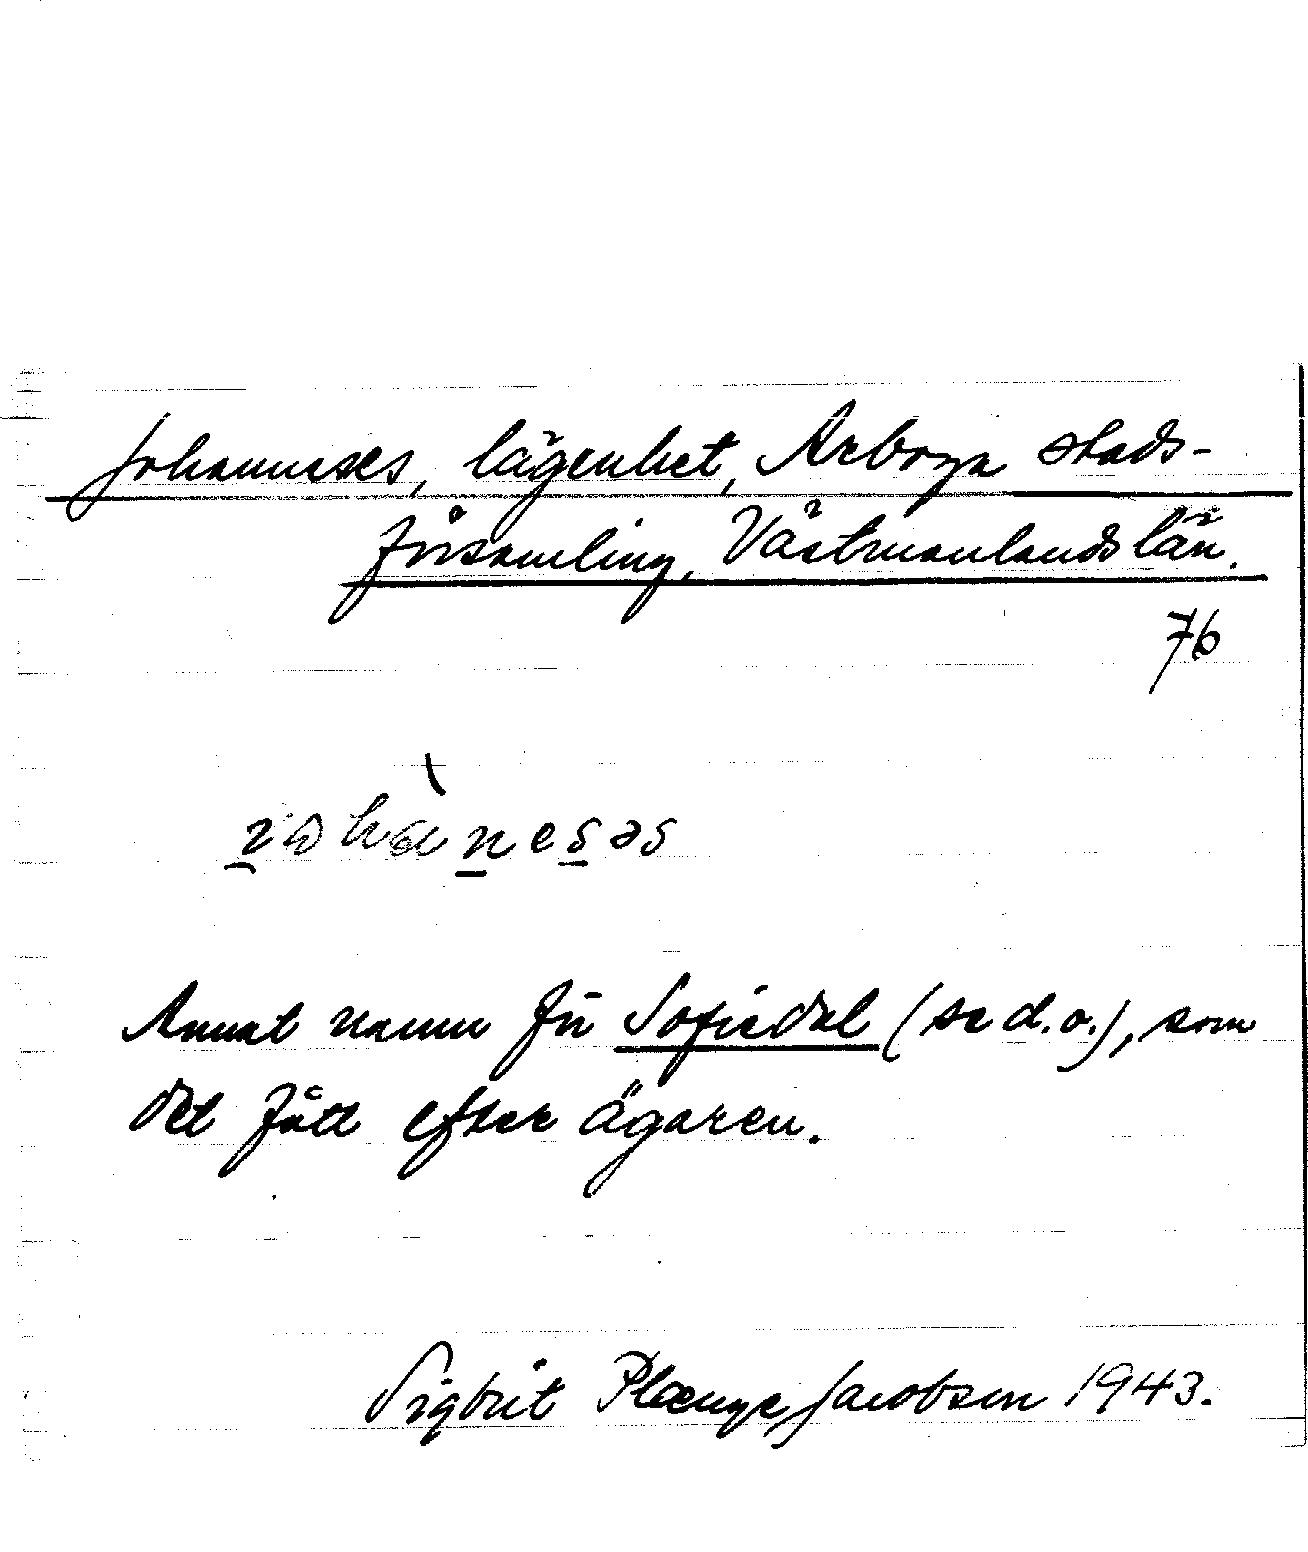 Johanneses, lägenhet, Arboga stads-
församling, Västmanlands län.
76
Annat namn för Sofiedal (se d.o.), som
det fått efter ägaren.
Sigbrit Plænge Jacobson 1943.